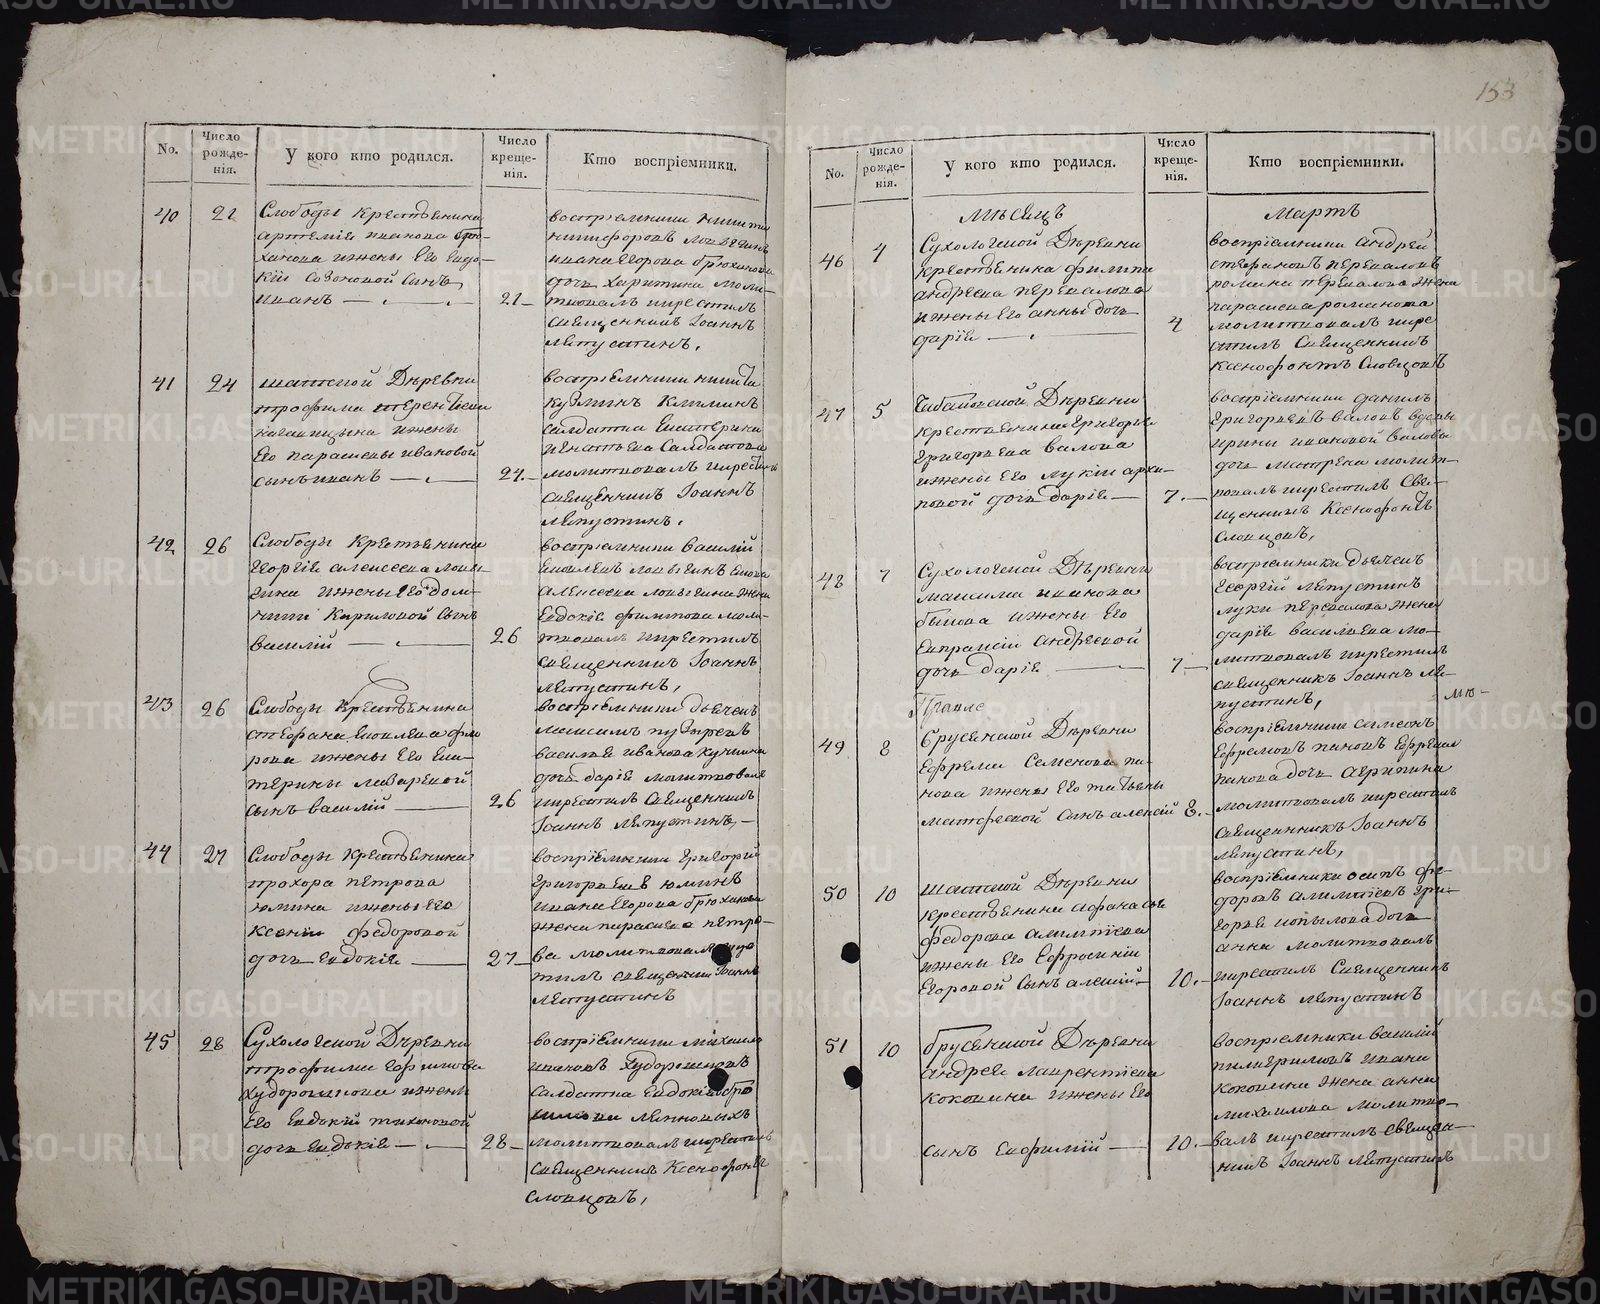 153
No.
Число рожде-нія.
У кого кто родился.
Число креще-нія.
Кто воспріемники.
40
21
Слободы крестьянина
артемія иванова брю-
ханова и жены его евдо-
кіи созоновой сынъ
иванъ
21
воспріемники никита
никифоровъ
ивана егорова брюханова
дочь харитина моли-
твовалъ и крестилъ
священникъ Іоаннъ
ляпустинъ.
41
24
шатской Деревни
трофима терентьева
и жены
его парасковьи ивановой
сынъ иванъ
24.
воспріемники никита
кузминъ климинъ
салдатка екатерина
игнатьева
молитвовалъ и крестилъ
священникъ Іоаннъ
ляпустинъ.
42
26
Слободы Крестьянина
георгія алексеева
и жены его дом-
ники Кириловой сынъ
василій
26
воспріемники василій
алексеева жена
евдокія филипова моли-
твовалъ и крестилъ
священникъ Іоаннъ
ляпустинъ,
43
26
Слободы Крестьянина
стефана
и жены его ека-
терины лазаревой
сынъ василій
26
воспріемники дьячекъ
максимъ пузыревъ
василья иванова
дочь дарія молитвовалъ
и крестилъ священникъ
Іоаннъ ляпустинъ,
44
27
Слободы Крестьянина
прохора петрова
юмина и жены его
Ксеніи федоровой
дочь евдокія
27
воспріемники григорій
григорьевъ юминъ
ивана егорова брюханова
жена парасковья петро-
ва молитвовалъ и крес
тилъ священникъ Іоаннъ
ляпустинъ
45
28
Сухоложской Деревни
трофима ефимова
худорошкова и жены
его евдокіи тихоновой
дочь евдокія
28
воспріемники михаило
ивановъ худорошковъ
салдатка евдокія
молитвовалъ и крестилъ
священникъ Ксенофонтъ
словцовъ,
No.
Число рожде-нія.
У кого кто родился.
Число креще-нія.
Кто воспріемники.
мѣсяцъ
мартъ
46
4
Сухоложской Деревни
крестьянина филипа
андреева перевалова
и жены его анны дочь
дарія
4
воспріемники андрей
стефановъ переваловъ
романа перевалова жена
парасковья романова
молитвовалъ и кре
стилъ священникъ
Ксенофонтъ Словцовъ
47
5
Деревни
крестьянина григорья
григорьева валова
и жены его лукіи архи-
повой дочь дарія
7.
воспріемники данилъ
григорьевъ валовъ вдовы
ирины ивановой валовы
дочь матрена молит-
вовалъ и крестилъ свя-
щенникъ Ксенофонтъ
словцовъ,
48
7
Сухоложской Деревни
максима иванова
быкова и жены его
евпраксіи андреевой
дочь дарія
7.
воспріемники дьячекъ
георгій ляпустинъ
луки перевалова жена
дарія васильева мо-
литвовалъ и крестилъ
священникъ Іоаннъ ля-
пустинъ,
49
8
брусянской Деревни
Ефрема Семенова па-
нова и жены его татьяны
матфеевой сынъ алексій
8.
воспріемники симеонъ
ефремовъ пановъ ефрема
панова дочь агрипина
молитвовалъ и крестилъ
священникъ Іоаннъ
ляпустинъ,
50
10
шатской Деревни
крестьянина афанасья
федорова
и жены его ефросиніи
егоровой сынъ алексій
10.
воспріемники осипъ фе-
доровъ гри-
горья копылова дочь
анна молитвовалъ
и крестилъ Священникъ
Іоаннъ ляпустинъ
51
10
брусянской Деревни
андрея лаврентьева
коковина и жены его
сынъ евфимій
10.
воспріемники василій
ивана
коковина жена анна
михайлова молитво-
валъ и крестилъ священ-
никъ Іоаннъ ляпустинъ
METRIKI.GASO-URAL.RU